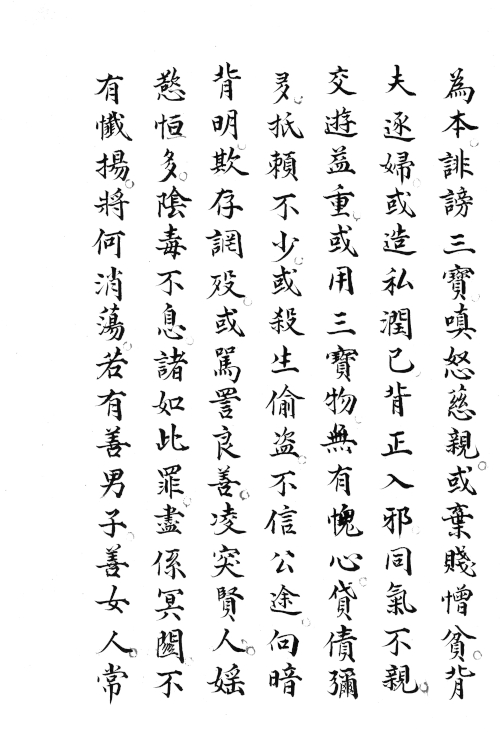 為本誹謗三寶嗔怒慈親或棄賤憎貧背
夫逐婦或造私潤已背正入邪同氣不親
交遊益重或用三寶物無有愧心貸債彌
多抵賴不少或殺生偷盗不信公途向暗
背明欺存調歿或罵詈良善凌突賢人婬
慾恒多陰毒不息諸如此罪盡係冥關不
有懺揚將何消蕩若有善男子善女人常